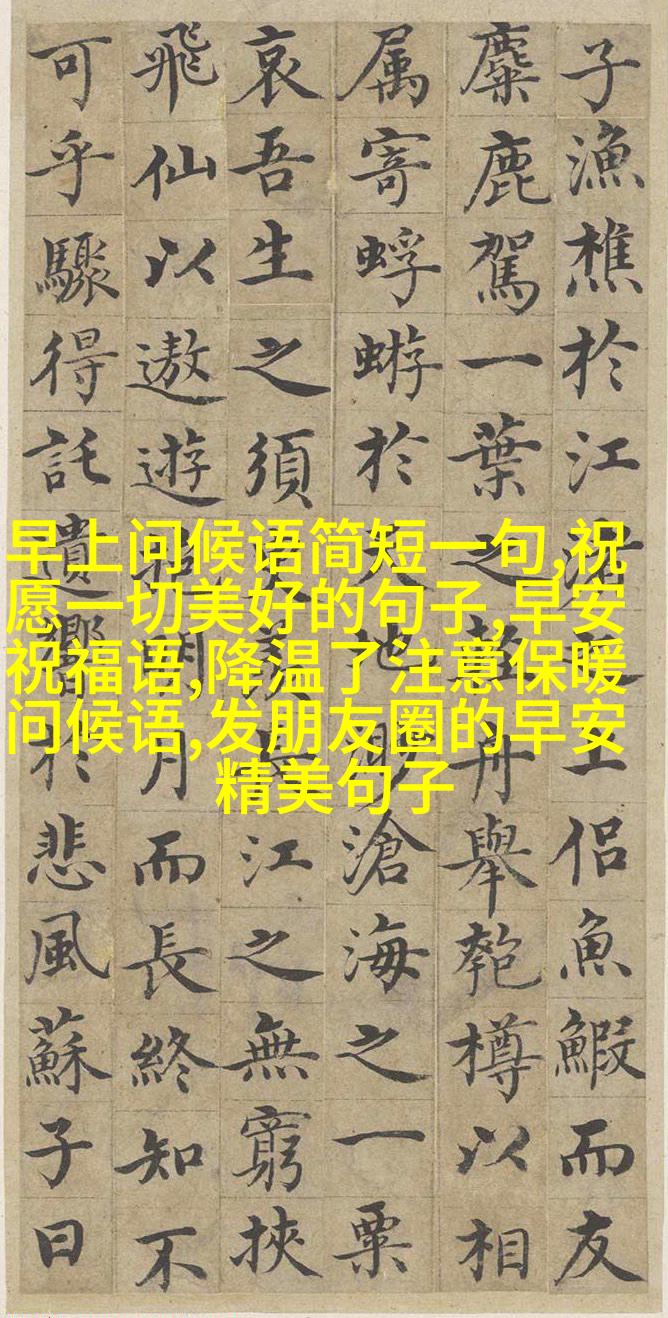 早上问候语简短一句,祝
愿一切美好的句子,早安
祝福语,降温了注意保暖
问候语,发朋友圈的早安
精美句子
子漁樵於江渚之上侶魚鰕而友
麋鹿駕一葉之扁舟舉匏樽以相
属寄蜉蝣於天地眇滄海之一粟
哀吾生之須臾羨長江之無窮挾
飛仙以遨遊抱明月而長終知不
可乎驟得託遺響於悲風蘇子曰